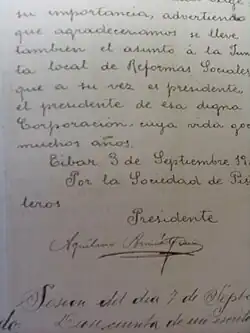 su importancia, advertiendo
que agradeceriamos se lleve
tambien el asunto á la Jun
ta local de Reformas Sociales
que a su vez es presidente,
el presidente de esa digna
Corporación, cuya vida
muchos años.
Eibar 3 de Septiembre 19
Por la Sociedad de Pis
leros
Presidente
Aquilino
Sesion del dia 7 de Sept
cuenta de un